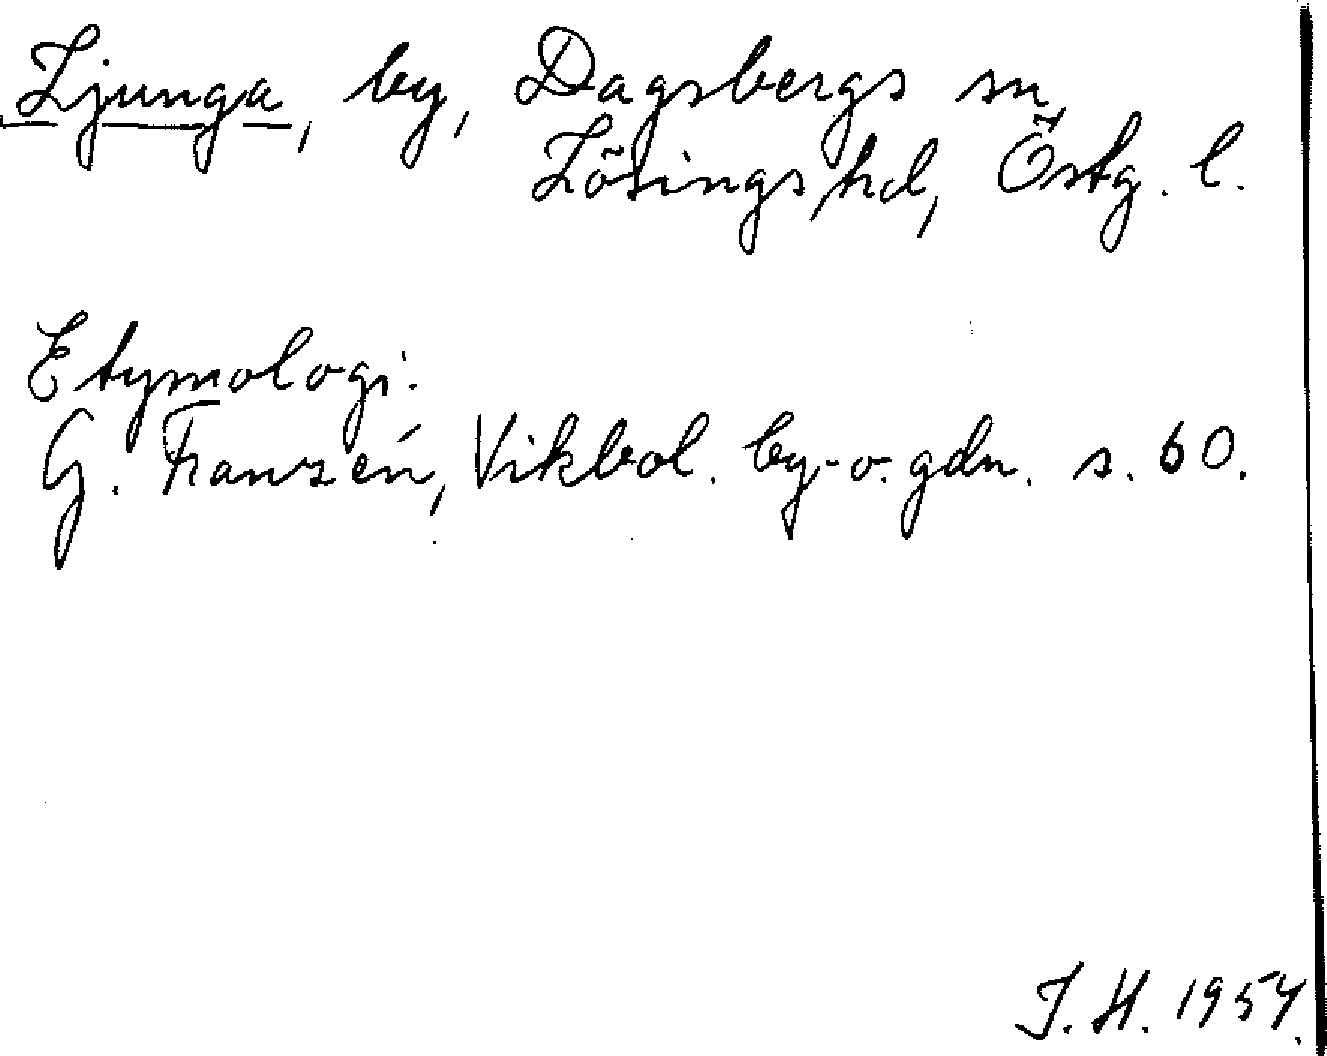 Ljunga, by, Dagsbergs sn
Lösings hd, Östg. l.
Etymologi:
G. Franzén, Vikbol. by- o. gdn. s. 60.
J. H. 1954.